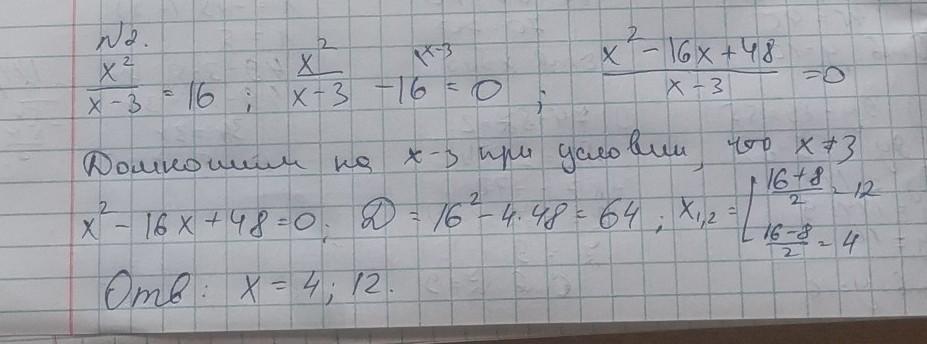 N2.
x²/(x-3) = 16 ; x²/(x-3) - 16 \x-3 = 0 ; (x² - 16x + 48)/(x-3) = 0
Домножим на x-3 при условии, что x≠3
x² - 16x + 48 = 0; D = 16² - 4·48 = 64 ; x₁,₂ = [ (16+8)/2 = 12
(16-8)/2 = 4
Отв: x = 4; 12.